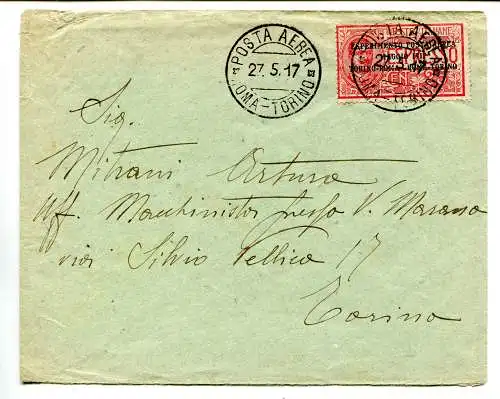 POSTA AEREA
27.5.17
ROMA-TORINO
POSTA AEREA
ESPERIMENTO POSTA AEREA
MAGGIO 1917
TORINO-ROMA · ROMA-TORINO
Sig.
Mitrani Arturo
Uff. Macchinista presso V. Marano
via Silvio Pellico 17
Torino